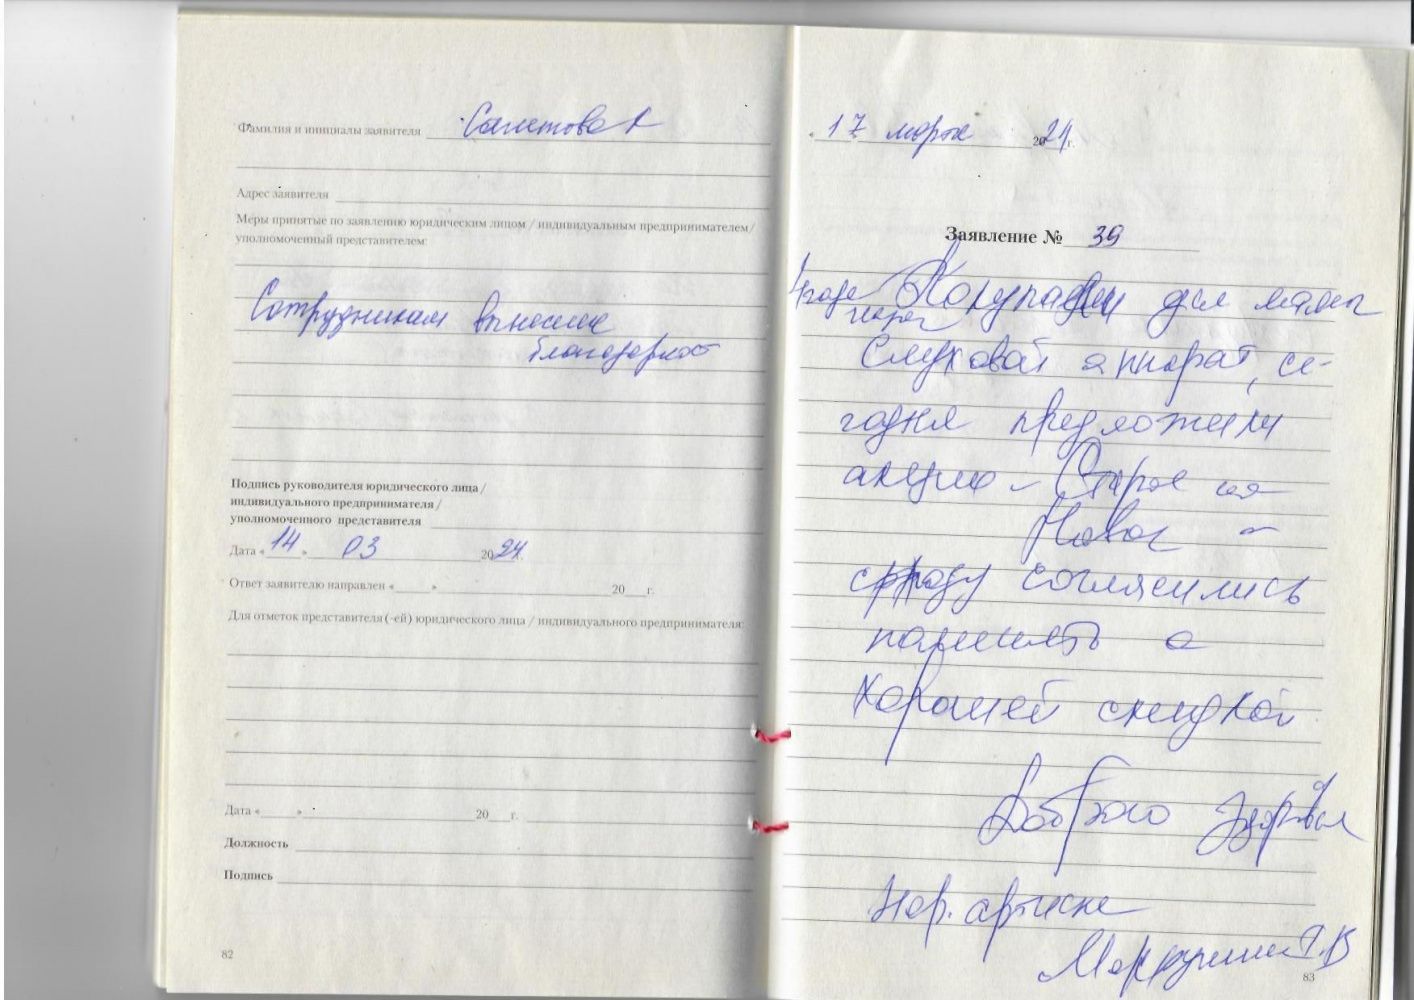 Фамилия и инициалы заявителя
Адрес заявителя
Меры принятые по заявлению юридическим лицом / индивидуальным предпринимателем/
уполномоченный представителем:
Сотрудникам вынесли
благодарност
Подпись руководителя юридического лица /
индивидуального предпринимателя /
уполномоченного представителя
Дата « 14 » 03 2024.
Ответ заявителю направлен « » 20 г.
Для отметок представителя (-ей) юридического лица / индивидуального предпринимателя:
Дата « » 20 г.
Должность
Подпись
82
« 17 марта 2024 г.
Заявление № 39
4 года Покупали для мамы
назад
Слуховой аппарат, се-
годня предложили
акцию - Старое на
Новое -
сразу согласились
поменять с
хорошей скидкой
Доброго Здоровья
Нар. артистка
83